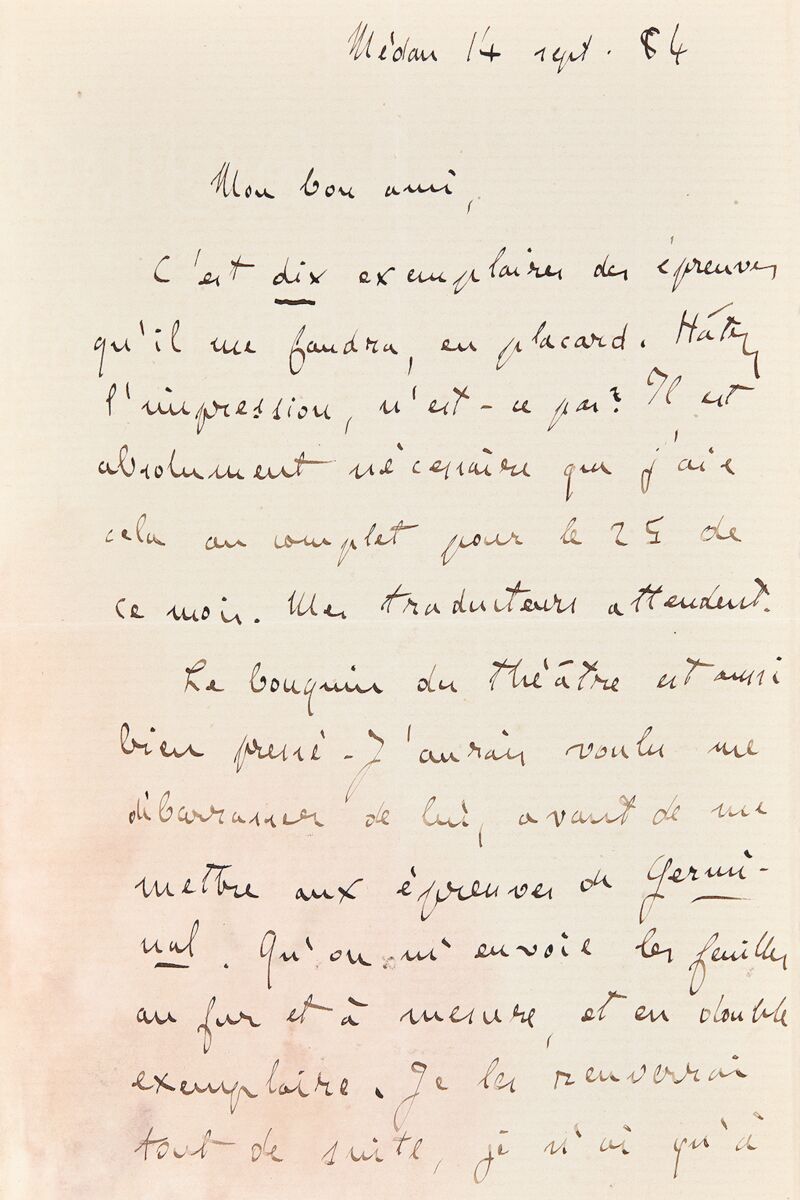 Médan 14 sept. 84
Mon bon ami,
C'est dix exemplaires des épreuves
qu'il me faudra, en placard. Hâtez
l'impression, n'est-ce pas? Il est
absolument nécessaire que j'aie
cela au complet pour le 25 de
ce mois. Mes traducteurs attendent.
Le bouquin du théâtre est aussi
bien pressé. J'aurais voulu me
débarrasser de lui, avant de me
mettre aux épreuves de Germi-
nal. Qu'on m'envoie les feuilles
au fur et à mesure, et en double
exemplaire. Je les renverrai
tout de suite, je n'ai qu'à